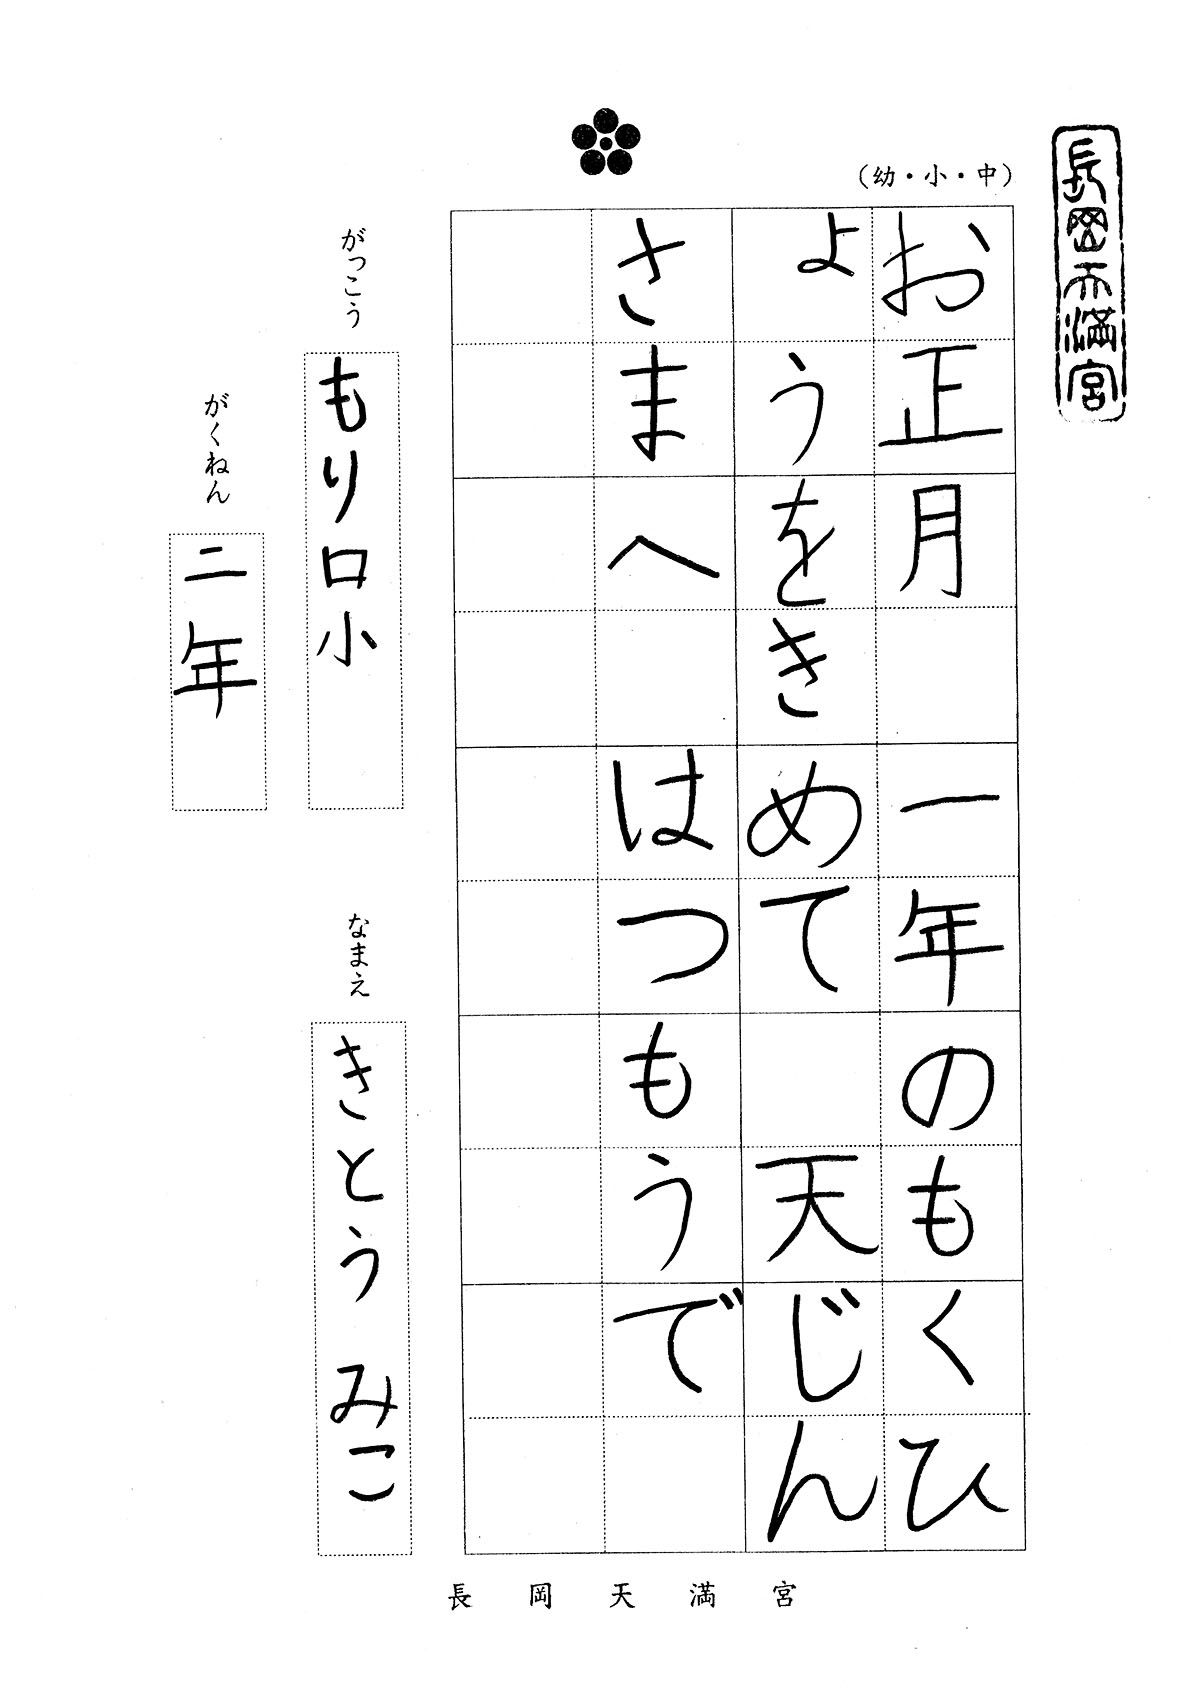 長岡天満宮
(幼・小・中)
お正月　一年のもくひ
ょうをきめて　天じん
さまへ　はつもうで
がっこう
もり口小
がくねん
二年
なまえ
きとう　みこ
長岡天満宮